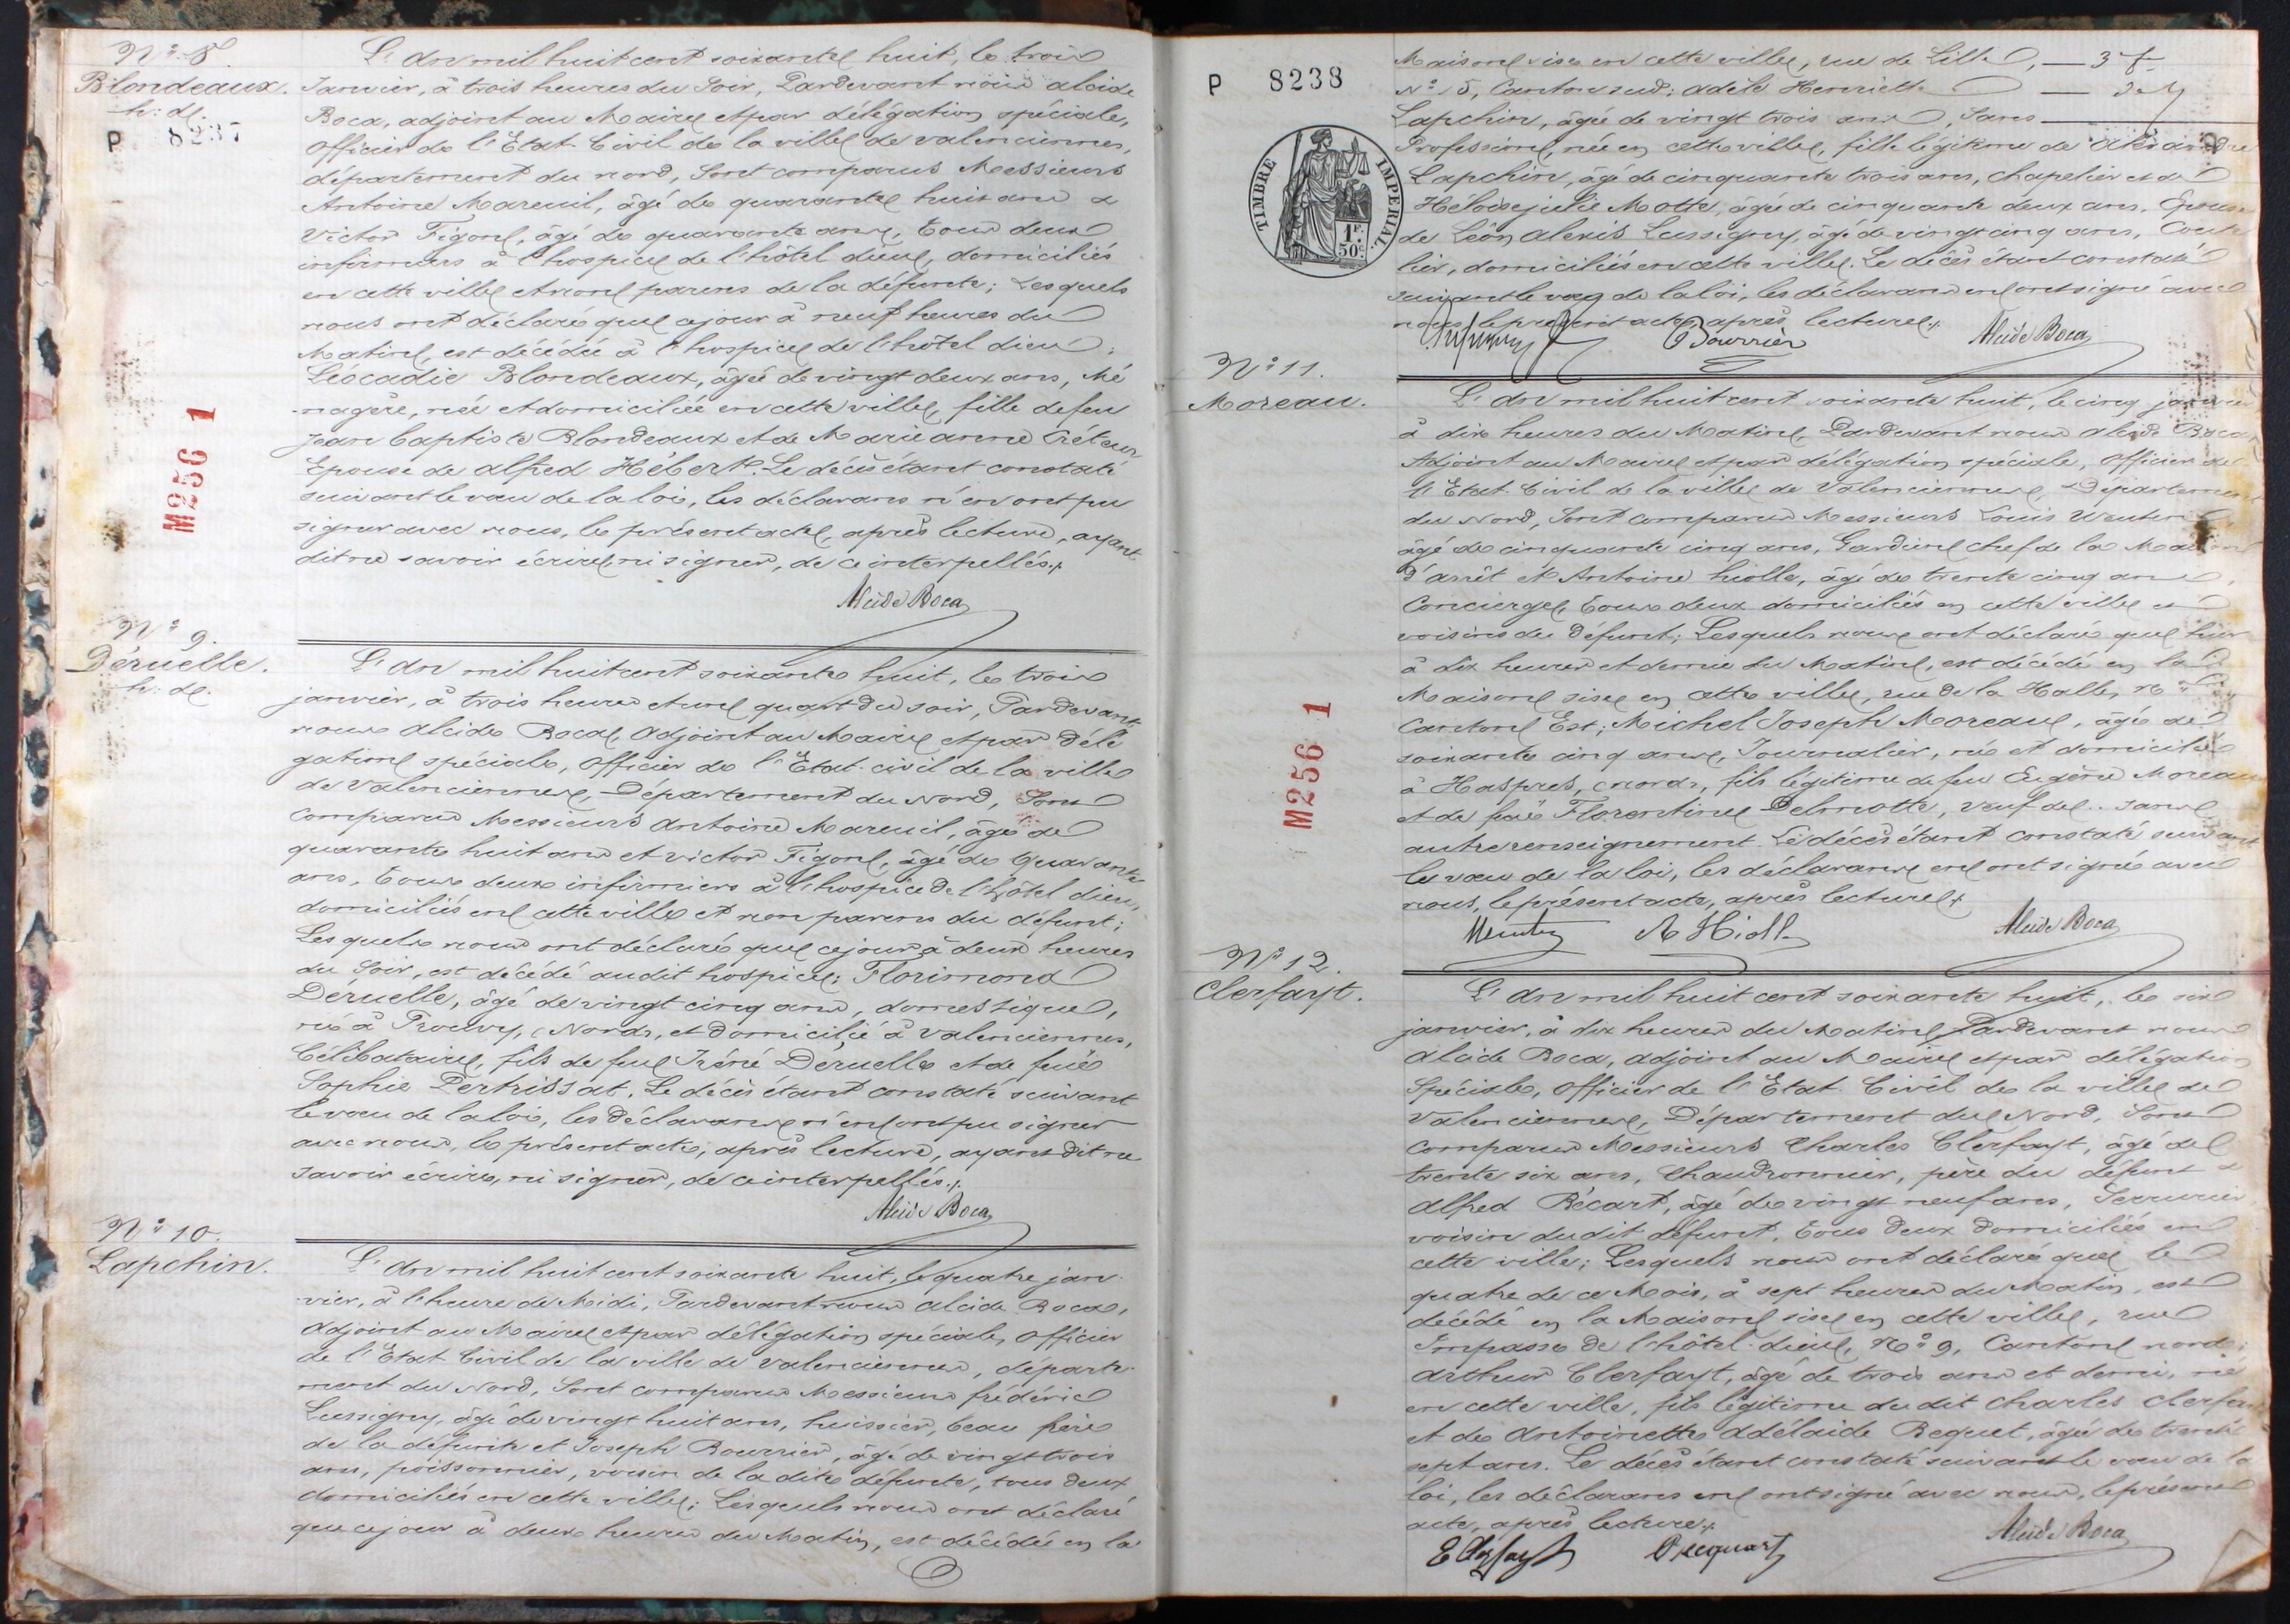 N° 8.
Blondeaux.
h: d.
P 8237
M256 1
L'an mil huit cent soixante huit, le trois
Janvier, à trois heures du soir, Pardevant nous Alcide
Boca, adjoint au Maire et par délégation spéciale,
Officier de l'Etat Civil de la ville de Valenciennes,
département du nord, Sont comparus Messieurs
Antoine Mareuil, âgé de quarante huit ans &
Victor Figon, âgé de quarante ans, tous deux
infirmiers à l'hospice de l'hôtel dieu, domiciliés
en cette ville et non parens de la défunte; Lesquels
nous ont déclaré que cejour à neuf heures du
Matin, est décédée à l'hospice de l'hôtel dieu:
Léocadie Blondeaux, âgée de vingt deux ans, Mé
nagère, née et domiciliée en cette ville, fille de feu
Jean Baptiste Blondeaux et de Marie anne Créteur
Epouse de alfred Hébert. Le décès étant constaté
suivant le vœu de la loi, les déclarans n'en ont pu
signer avec nous, le présent acte, après lecture, ayant
dit ne savoir écrire, ni signer, de ce interpellés.
Alcide Boca
N° 9.
Déruelle.
h: d.
L'an mil huit cent soixante huit, le trois
janvier, à trois heures et un quart du soir, Pardevant
nous Alcide Boca, Adjoint au Maire et par délé
gation spéciale, Officier de l'Etat civil de la ville
de Valenciennes, Département du Nord, Sont
comparus Messieurs Antoine Mareuil, âgé de
quarante huit ans et victor Figon, âgé de Quarante
ans, tous deux infirmiers à l'hospice de l'hôtel dieu,
domiciliés en cette ville et non parens du défunt;
Lesquels nous ont déclaré que cejour à deux heures
du soir, est décédé audit hospice: Florimond
Déruelle, âgé de vingt cinq ans, domestique,
né à Prouvy, (Nord), et domicilié à Valenciennes,
Célibataire, fils de feu Iréné Déruelle et de feue
Sophie Pertrissat. Le décès étant constaté suivant
le vœu de la loi, les déclarans n'en ont pu signer
avec nous, le présent acte, après lecture, ayant dit ne
savoir écrire, ni signer, de ce interpellés.
Alcide Boca
N° 10.
Lapchin.
L'an mil huit cent soixante huit, le quatre jan
vier, à l'heure de Midi, Pardevant nous Alcide Boca,
Adjoint au Maire et par délégation spéciale, Officier
de l'Etat Civil de la ville de Valenciennes, départe
ment du Nord, Sont comparus Messieurs frédéric
Lussigny, âgé de vingt huit ans, huissier, beau frère
de la défunte et Joseph Bourrier, âgé de vingt trois
ans, poissonnier, voisin de la dite défunte, tous deux
domiciliés en cette ville; Lesquels nous ont déclaré
que cejour à deux heures du Matin, est décédée en la
P 8238
TIMBRE IMPERIAL
1F. 50c.
Maison sise en cette ville, rue de Lille,
N° 5, Canton sud: adèle Henriette
Lapchin, âgée de vingt trois ans, Sans
Profession, née en cette ville, fille légitime de Alexandre
Lapchin, âgé de cinquante trois ans, chapelier et de
Héloïse julie Motte, âgée de cinquante deux ans, Epouse
de Léon Alexis Lussigny, âgé de vingt cinq ans,
domiciliés en cette ville. Le décès étant constaté
suivant le vœu de la loi, les déclarans en ont signé avec
nous le présent acte, après lecture.
Bourrier
Alcide Boca
N° 11.
Moreau.
M256 1
L'an mil huit cent soixante huit, le cinq janvier
à dix heures du Matin, Pardevant nous alcide Boca
Adjoint au Maire et par délégation spéciale, Officier de
l'Etat Civil de la ville de Valenciennes, Département
du Nord, Sont comparus Messieurs Louis
âgé de cinquante cinq ans, Gardien chef de la Maison
d'arrêt et Antoine hiolle, âgé de trente cinq ans,
Concierge, tous deux domiciliés en cette ville et
voisins du défunt; Lesquels nous ont déclaré que hier
à dix heures et demie du Matin, est décédé en la
Maison sise en cette ville, rue de la Halle, N°
Canton Est; Michel Joseph Moreau, âgé de
soixante cinq ans, Journalier, né et domicilié
à Haspres, (nord), fils légitime de feu Eugène Moreau
et de feue Florentine Delmotte, veuf de .. sans
autre renseignement. Le décès étant constaté suivant
le vœu de la loi, les déclarans en ont signé avec
nous, le présent acte, après lecture.
A Hiolle
Alcide Boca
N° 12.
Clerfayt.
L'an mil huit cent soixante huit, le six
janvier, à dix heures du Matin, Pardevant nous
Alcide Boca, adjoint au Maire et par délégation
Spéciale, Officier de l'Etat Civil de la ville de
Valenciennes, Département du Nord, Sont
comparus Messieurs Charles Clerfayt, âgé de
trente six ans, Chaudronnier, père du défunt &
alfred Bécart, âgé de vingt neuf ans, Serrurier
voisin dudit défunt, tous deux domiciliés en
cette ville; Lesquels nous ont déclaré que le
quatre de ce Mois, à sept heures du Matin, est
décédé en la Maison sise en cette ville, rue
Impasse de l'hôtel-dieu, N° 9, Canton nord:
Arthur Clerfayt, âgé de trois ans et demi, né
en cette ville, fils légitime dudit Charles Clerfayt
et de Antoinette Adélaïde Bequet, âgée de trente
sept ans. Le décès étant constaté suivant le vœu de la
loi, les déclarans en ont signé avec nous, le présent
acte, après lecture.
Alcide Boca